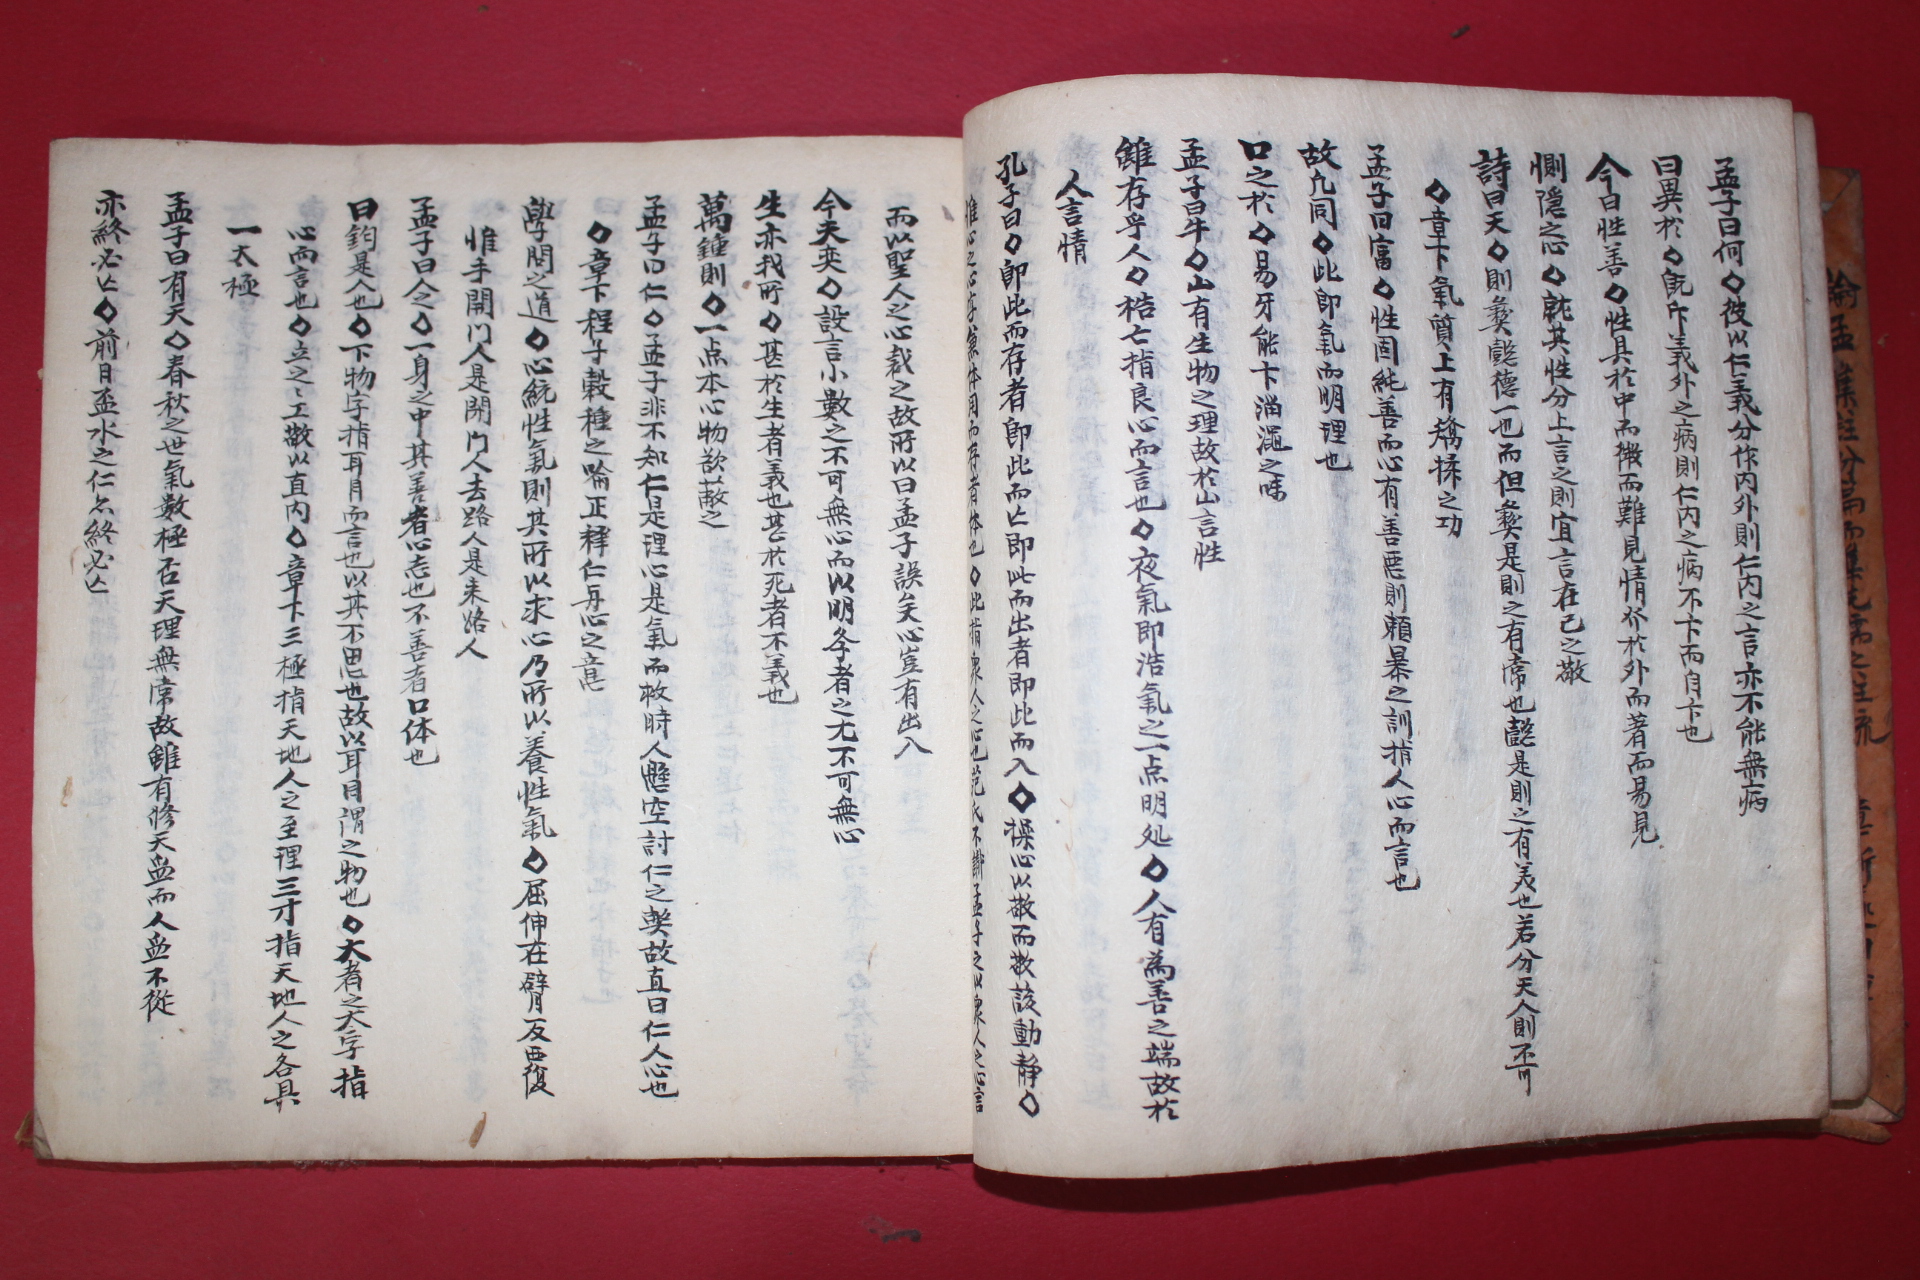 孟子曰何◇彼以仁義分作內外則仁內之言亦不能無病
曰異於◇旣斥義外之病則仁內之病不卞而自卞也
今曰性善◇性具於中而微而難見情於外而著而易見
惻隱之心◇就其性分上言之則宜言在己之敬
詩曰天◇則彛懿德一也而但彛是則之有常也懿是則之有美也若分天人則不可
◇章下氣質上有矯揉之功
孟子曰富◇性固純善而心有善惡則賴暴之訓指人心而言也
故凡同◇此卽氣而明理也
口之於◇易牙能卞淄澠之味
孟子曰牛◇山有生物之理故於山言性
雖存乎人◇梏亡指良心而言也◇夜氣即浩氣之一点明処◇人有爲善之端故於
人言情
孔子曰◇卽此而存者卽此而亡即此而出者即此而入◇操心以敬而敬該動静◇
惟心之心存兼体用而存者体也◇此指衆人之心也范氏不斷孟子之以衆人之心言
而以聖人之心裁之故所以曰孟子誤矣心豈有出入
今夫奕◇設言小數之不可無心而以明爲者之尤不可無心
生亦我所◇甚於生者義也甚於死者不義也
萬鍾則◇一点本心物欲以蔽之
孟子曰仁◇孟子非不知仁是理心是氣而救時人懸空討仁之弊故直曰仁人心也
◇章下程子穀種之喩正釋仁与心之意
學問之道◇心統性氣則其所以求心乃所以養性氣◇屈伸在臂反覆
惟手開門人是閉門人去路人是来路人
孟子曰人之◇一身之中其善者心志也不善者口体也
曰鈞是人也◇下物字指耳目而言也以其不思也故以耳目謂之物也◇大者之大字指
心而言也◇立之之工敬以直內◇章下三極指天地人之至理三才指天地人之各具
一太極
孟子曰有天◇春秋之世氣數極否天理無常故雖有修天並而人並不從
亦終必亡◇前日盃水之仁亦終必亡